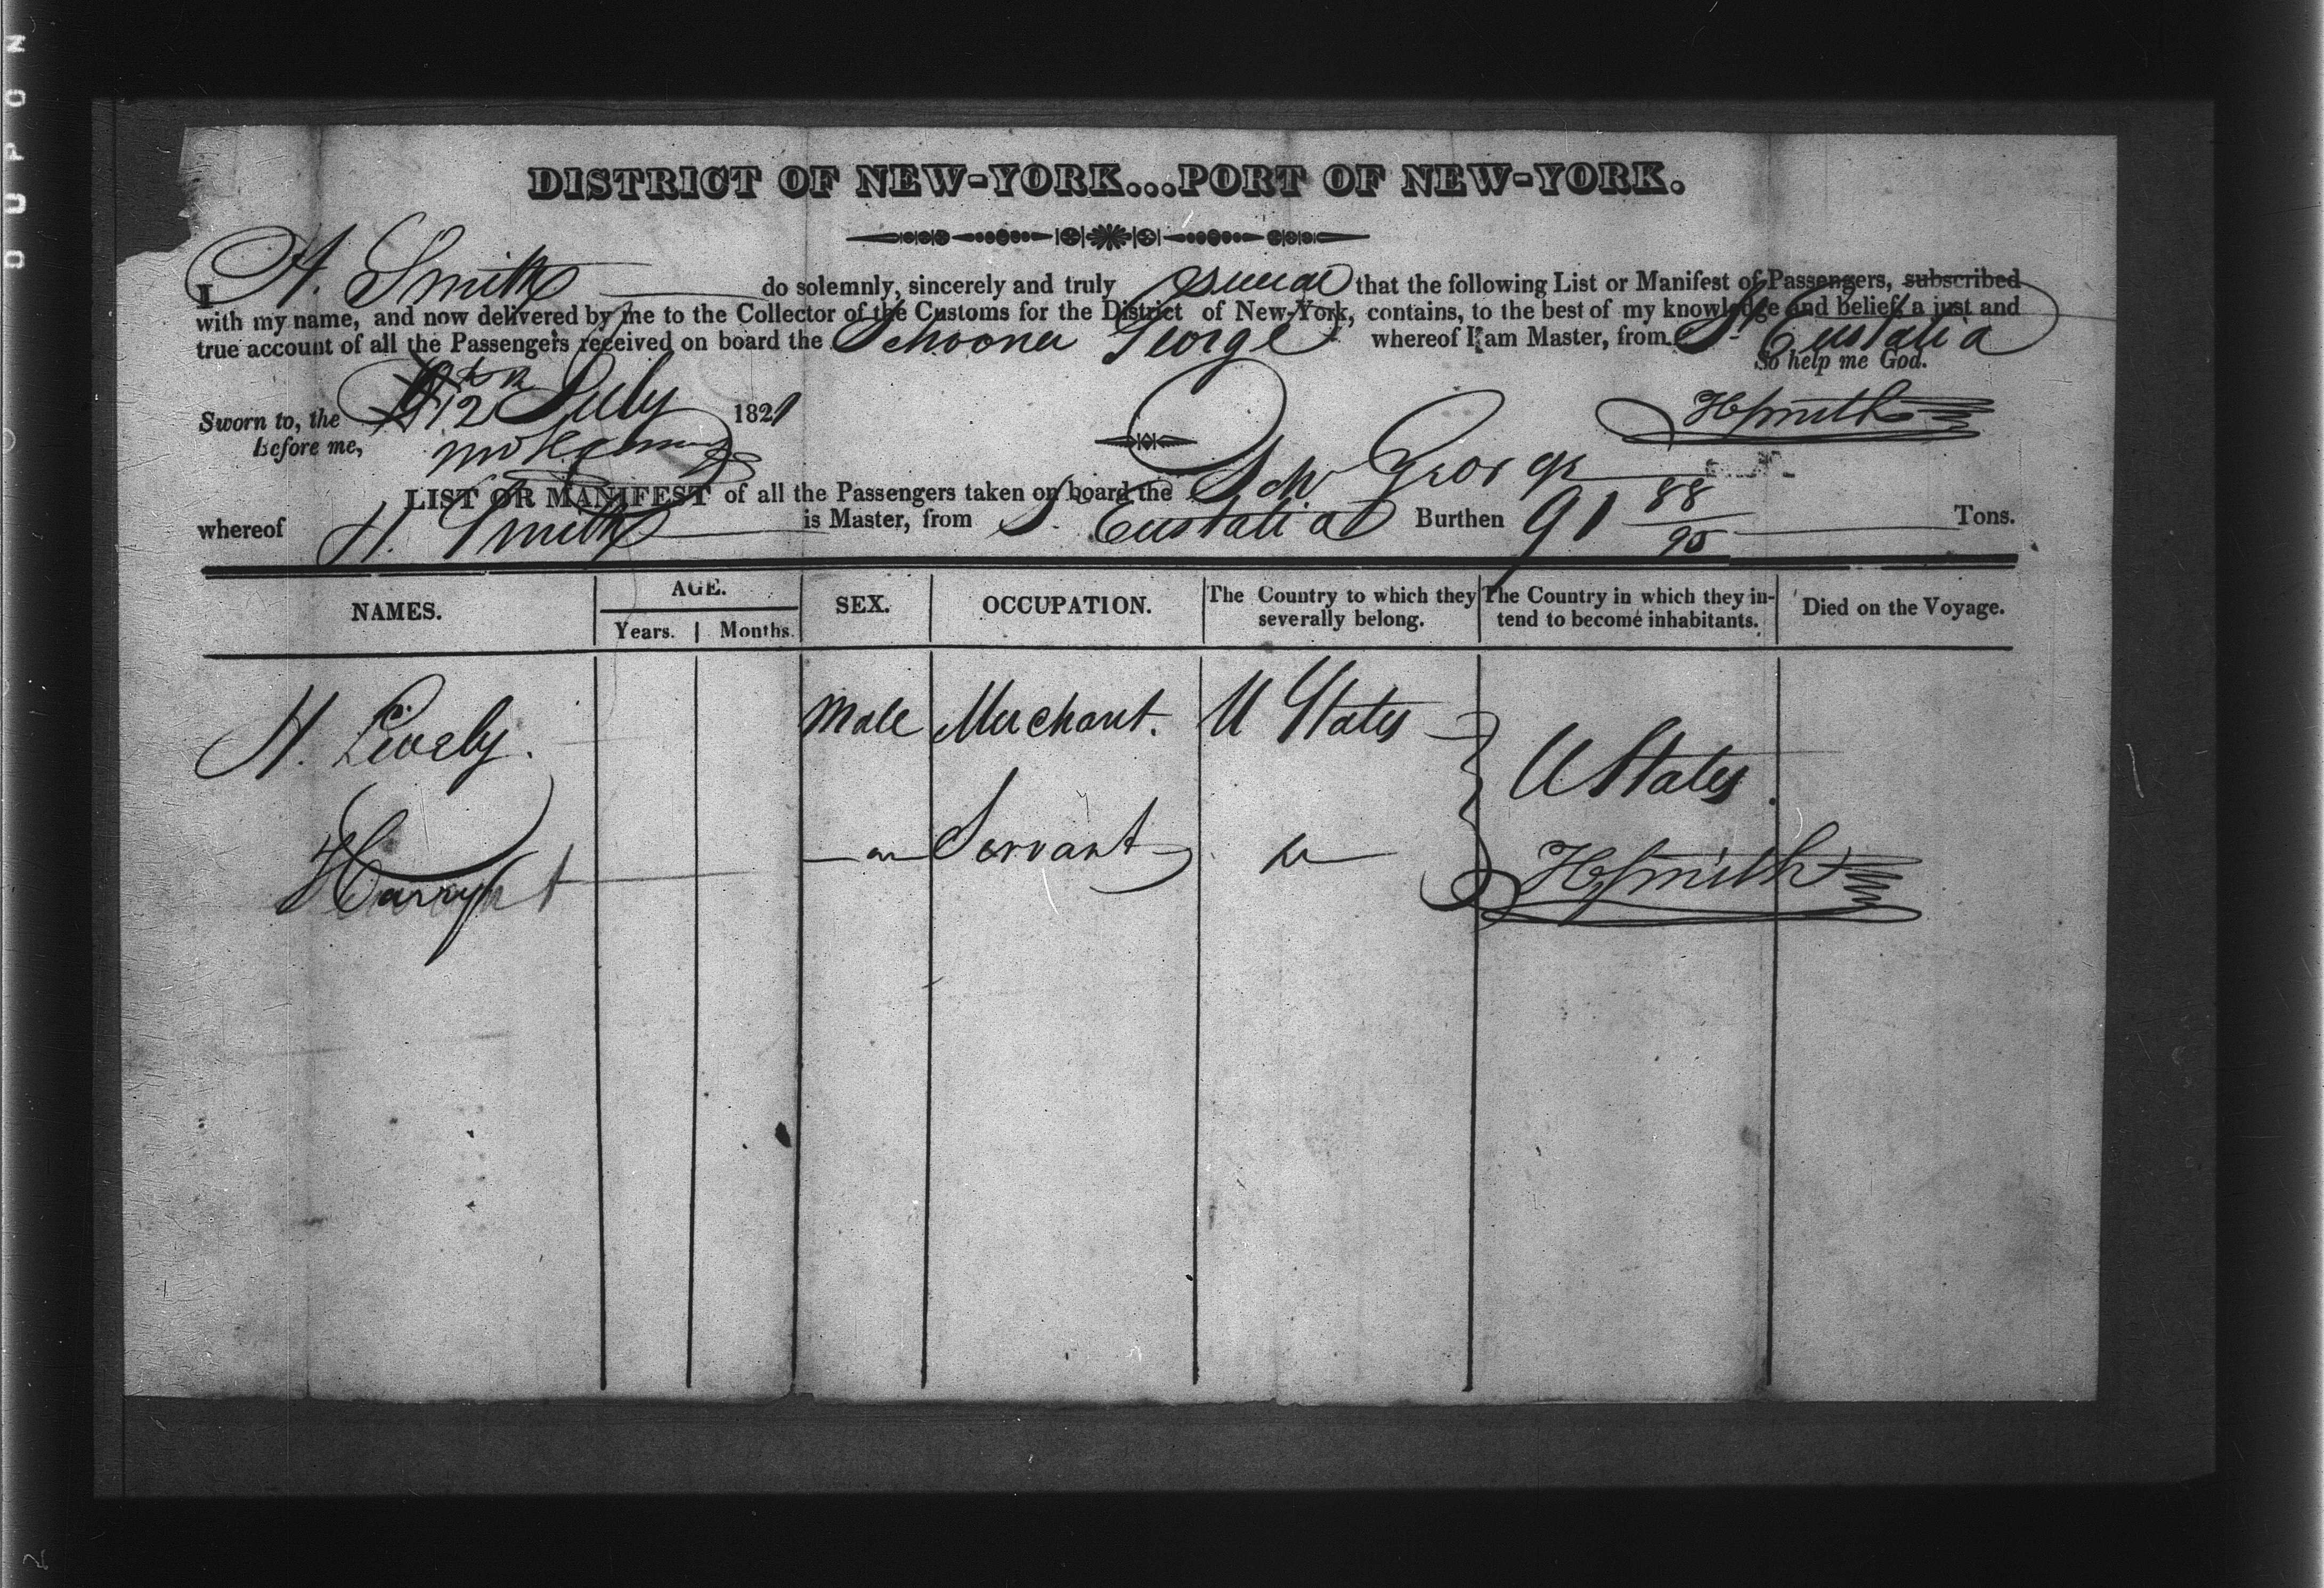 DUPON
DISTRICT OF NEW-YORK...PORT OF NEW-YORK.
I H. Smith do solemnly, sincerely and truly swear that the following List or Manifest of Passengers, subscribed
with my name, and now delivered by me to the Collector of the Customs for the District of New-York, contains, to the best of my knowledge and belief, a just and
true account of all the Passengers received on board the Schooner George whereof I am Master, from St Eustatia
So help me God.
Sworn to, the 12 July 1821
HSmith
Before me,
LIST OR MANIFEST of all the Passengers taken on board the Sch George
whereof H. Smith is Master, from St. Eustatia Burthen 91 88/95 Tons.
NAMES. AGE. SEX. OCCUPATION. The Country to which they severally belong. The Country in which they intend to become inhabitants. Died on the Voyage.
Years. Months.
H. Lively. Male Merchant. U States
U States.
Harry Servant
HSmith